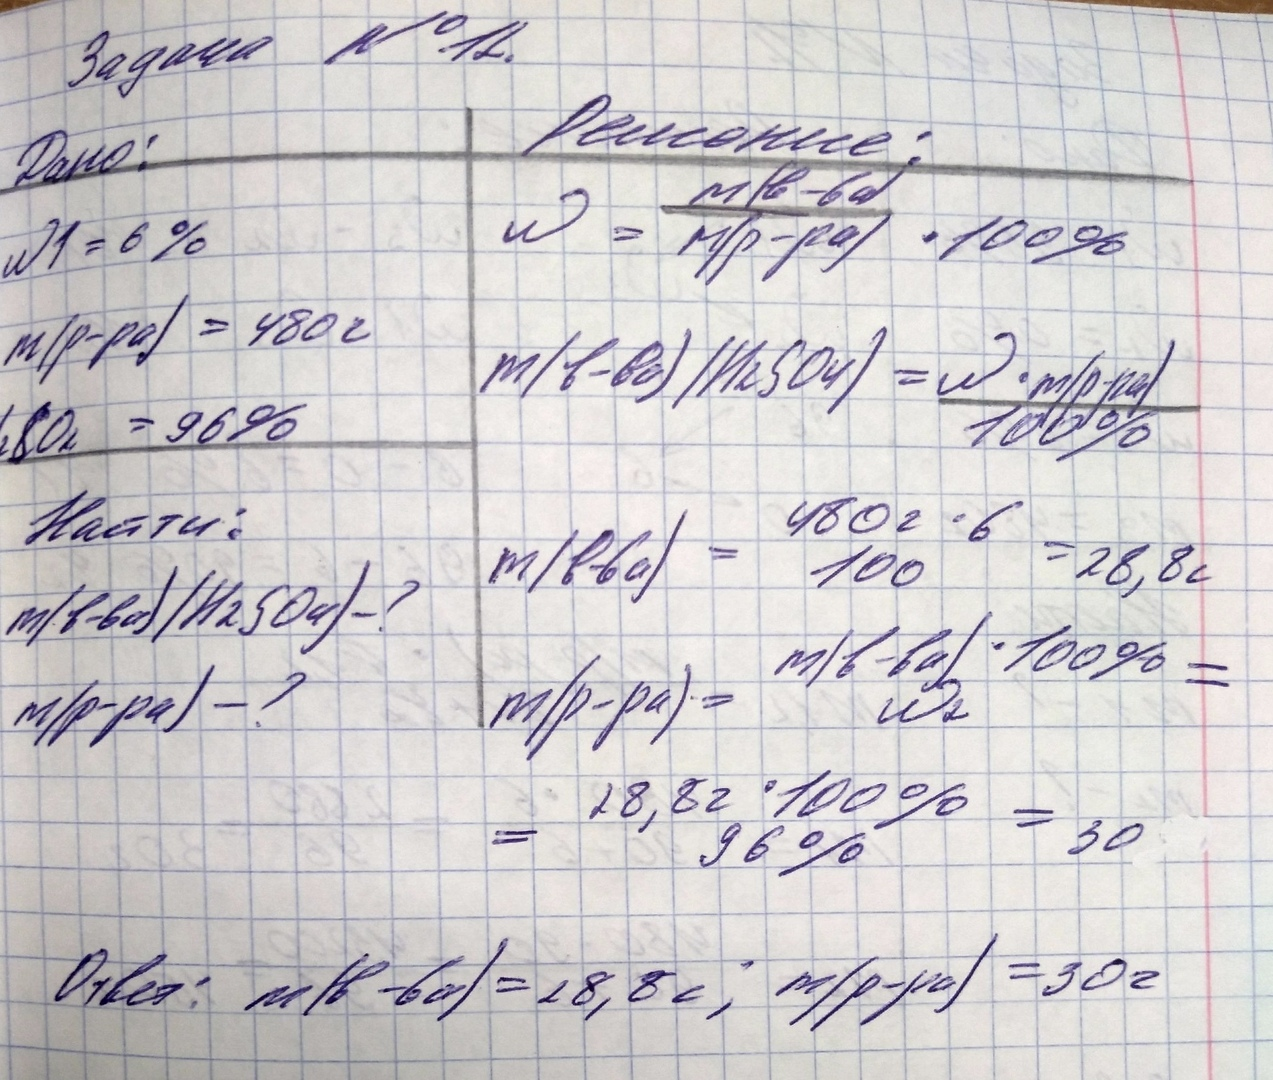 Задача № 12.
Дано:
W1 = 6%
m(р-ра) = 480г
H2SO4 = 96%
Найти:
m(в-ва)(H2SO4) - ?
m(р-ра) - ?
Решение:
W = m(в-ва) / m(р-ра) · 100%
m(в-ва)(H2SO4) = W · m(р-ра) / 100%
m(в-ва) = 480г · 6 / 100 = 28,8г
m(р-ра) = m(в-ва) · 100% / W2 =
= 28,8г · 100% / 96% = 30
Ответ: m(в-ва) = 28,8г; m(р-ра) = 30г